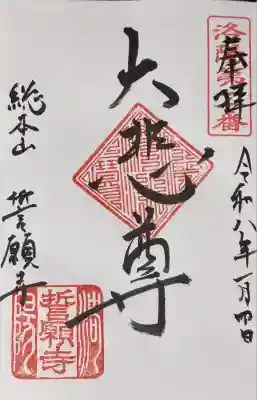 奉拝
令和八年一月四日
大悲尊
総本山 誓願寺
誓願寺